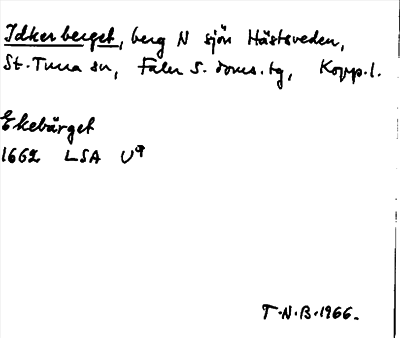 Idkerberget, berg N sjön Hästsveden,
St. Tuna sn, Falu S. doms. tg, Kopp. l.
Ekebärget
1662 LSA U9
T.N.B. 1966.